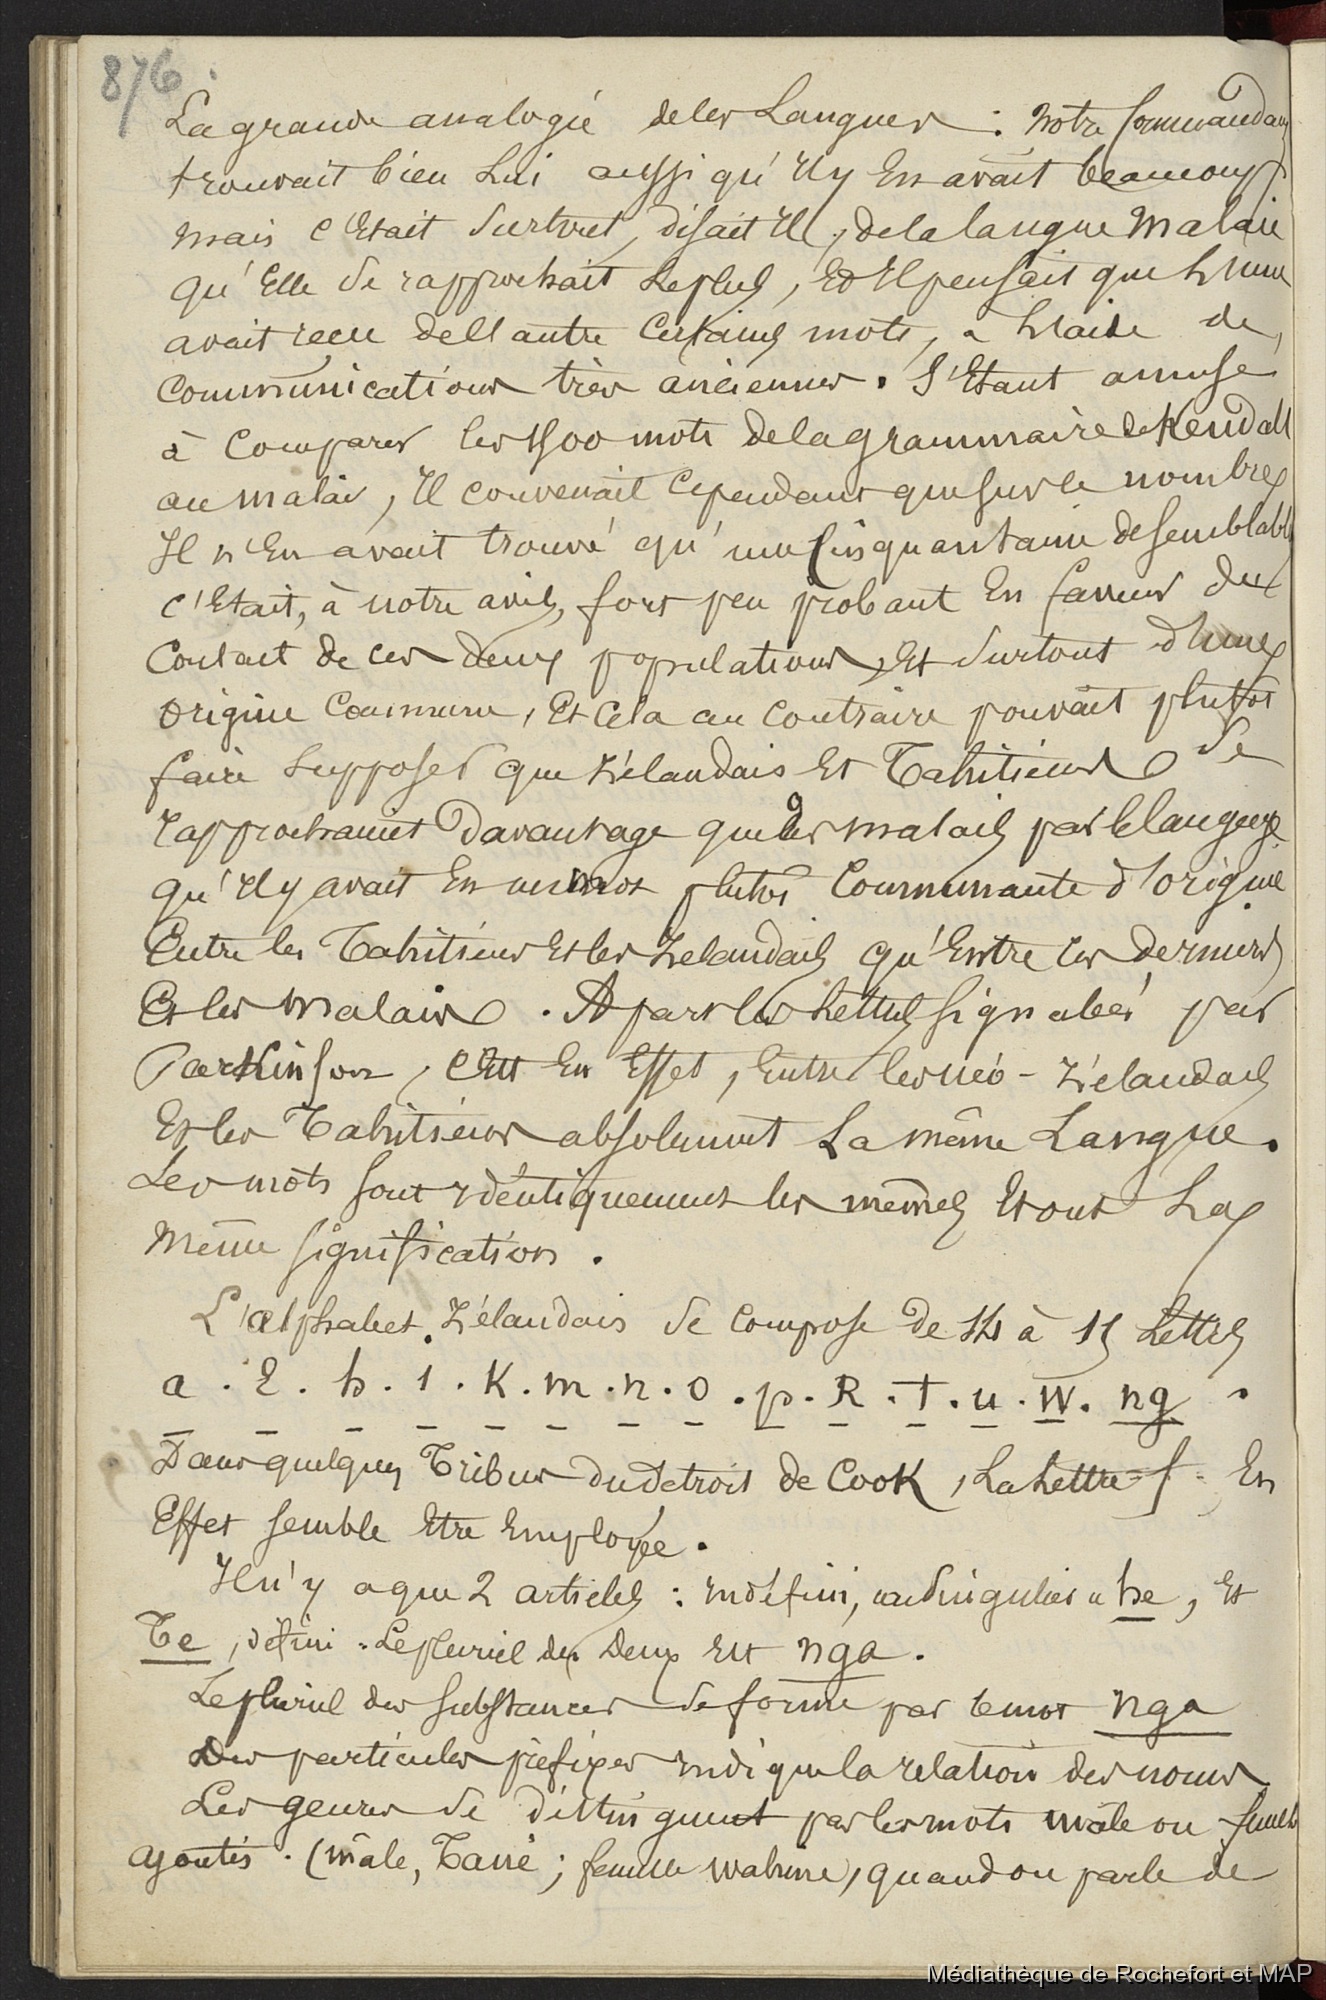 876
La grande analogie de les Langues : notre Commandant
trouvait bien Lui aussi qu'Il y En avait beaucoup
mais c'Etait Surtout, disait Il, de la langue Malaie
qu'Elle Se rapprochait Le plus, Et Il pensait que L'Une
avait recu de L'autre Certains mots, a L'aide de
Communications très anciennes. S'Etant amusé
à Comparer les 1500 mots de la grammaire de Kendall
au malai, Il convenait Cependant que sur le nombre
Il n'En avait trouvé qu'une Cinquantaine de semblables
c'Etait, à notre avis, fort peu probant En faveur du
Contact de ces deux populations, Et Surtout d'Une
Origine Commune, Et Cela au Contraire pouvait plutot
faire Supposer que Zélandais Et Tahitiens Se
rapprochaient Davantage que les malais par le langage
qu'Il y avait En un mot plutot Communauté d'origine
Entre les Tahitiens Et les Zelandais qu'Entre ces derniers
Et les Malais. A part les Lettres signalées par
Parkinson, c'Est En Effet, Entre les néo-Zélandais
Et les Tahitiens absolument La même Langue.
Les mots sont identiquement les mêmes Et ont La
Même signification.
L'alphabet Zélandais Se compose de 14 à 15 Lettres
a . E . h . i . K . m . n . o . p . R . T . u . W . ng .
Dans quelques Tribus du Detroit de Cook, La Lettre - f - En
Effet semble Etre Employée.
Il n'y a que 2 articles : Indéfini, au Singulier " he, Et
Te, défini - Le pluriel des Deux Est nga.
Le pluriel des Substances Se forme par le mot nga
Des particules préfixes Indique la relation des noms
Les genres Se distinguent par les mots mâle ou femelle
ajoutés. (mâle, Tane ; femelle wahine) quand on parle de
Médiathèque de Rochefort et MAP